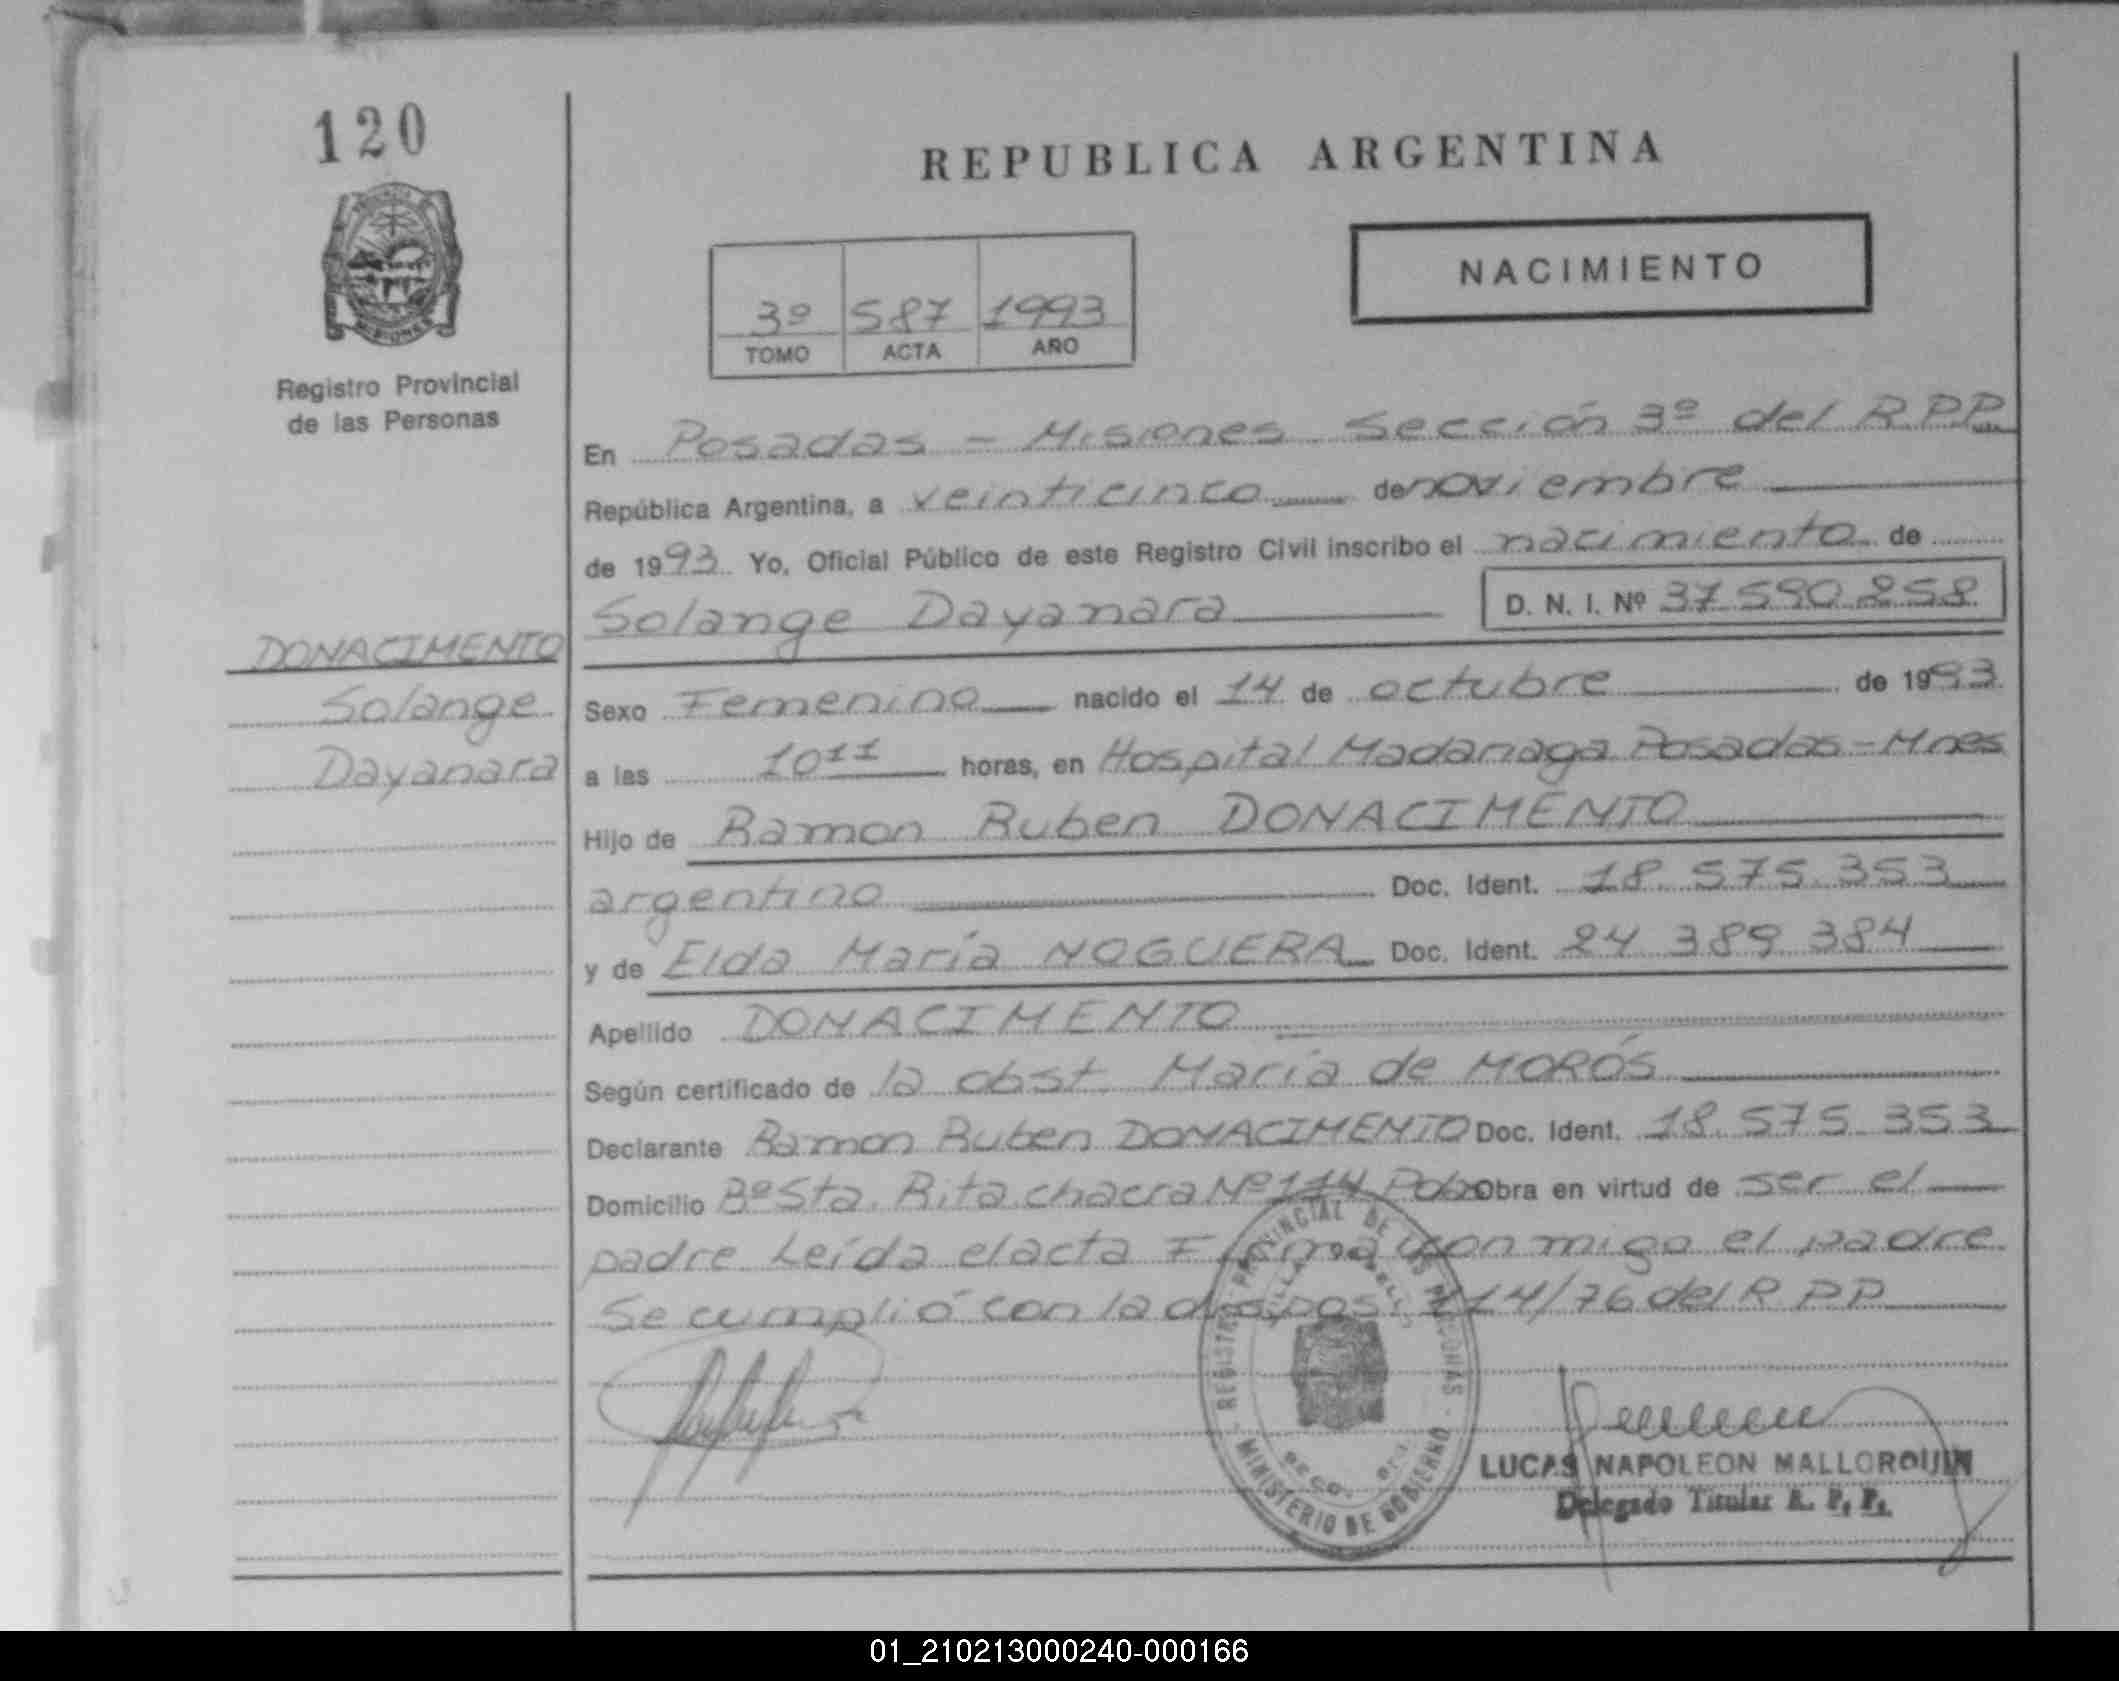 120
REPUBLICA ARGENTINA
NACIMIENTO
3º 587 1993
TOMO ACTA AÑO
Registro Provincial
de las Personas
En Posadas - Misiones Sección 3º del R.P.P.
República Argentina, a veinticinco de noviembre
de 1993. Yo, Oficial Público de este Registro Civil inscribo el nacimiento de
Solange Dayanara D. N. I. Nº 37 590 258
DONACIMENTO
Solange
Dayanara
Sexo Femenino nacido el 14 de octubre de 1993
a las 10 11 horas, en Hospital Madariaga Posadas-Mnes
Hijo de Ramon Ruben DONACIMENTO
argentino Doc. Ident. 18. 575 353
y de Elda María NOGUERA Doc. Ident. 24 389 384
Apellido DONACIMENTO
Según certificado de la obst. María de MORÓS
Declarante Ramon Ruben DONACIMENTO Doc. Ident. 18. 575 353
Domicilio Bº Sta. Rita chacra Nº 114 Obra en virtud de ser el
padre Leída el acta Firma conmigo el padre
Se cumplió con la dispos. 114/76 del R P P
REGISTRO PROVINCIAL DE LAS PERSONAS
MINISTERIO DE GOBIERNO
LUCAS NAPOLEON MALLORQUIN
Delegado Titular R. P. P.
01_210213000240-000166